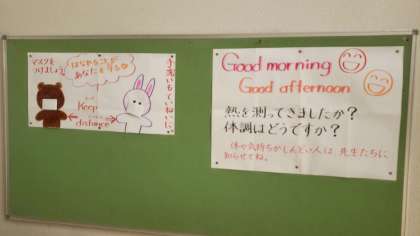 マスクを
つけましょう!
はなからコンボ
あなたもダンゴ
キープ
Keep
distance
手洗いもていねいに。
Good morning
Good afternoon
熱を測ってきましたか?
体調はどうですか?
体や気持ちがしんどい人は、先生たちに
知らせてね。